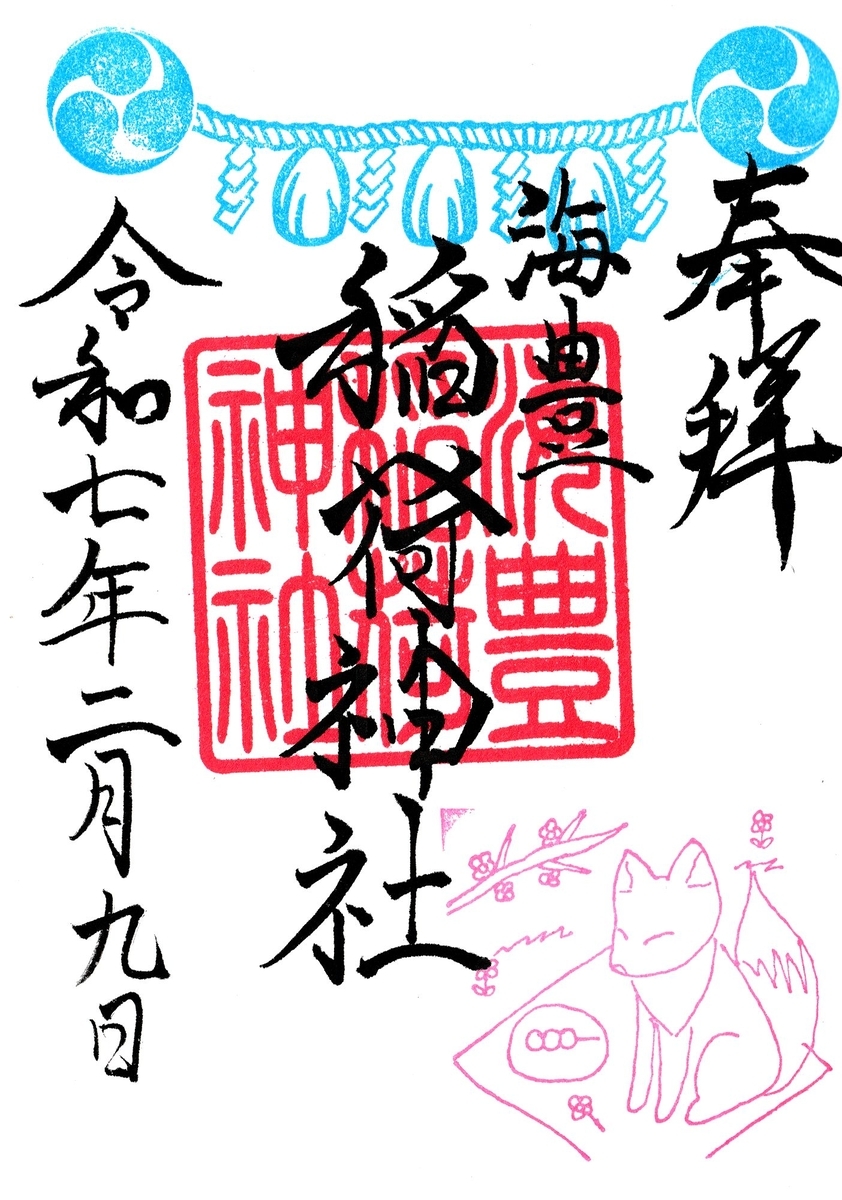 奉拝
海豊
稲荷神社
令和七年二月九日
海豊
稲荷
神社